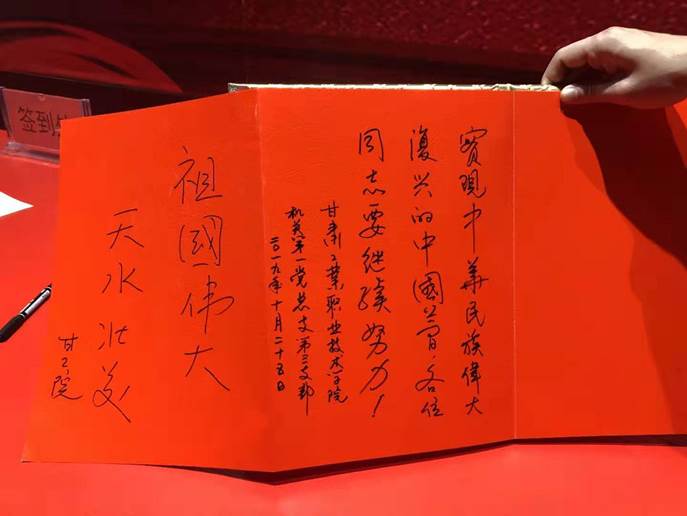 實现中華民族偉大
復兴的中國夢,各位
同志要继续努力!
甘肃工業职业技术学院
机关第一党总支第三支部
二〇一九年十月二十五日
祖國伟大
天水壮美
甘工院
签到